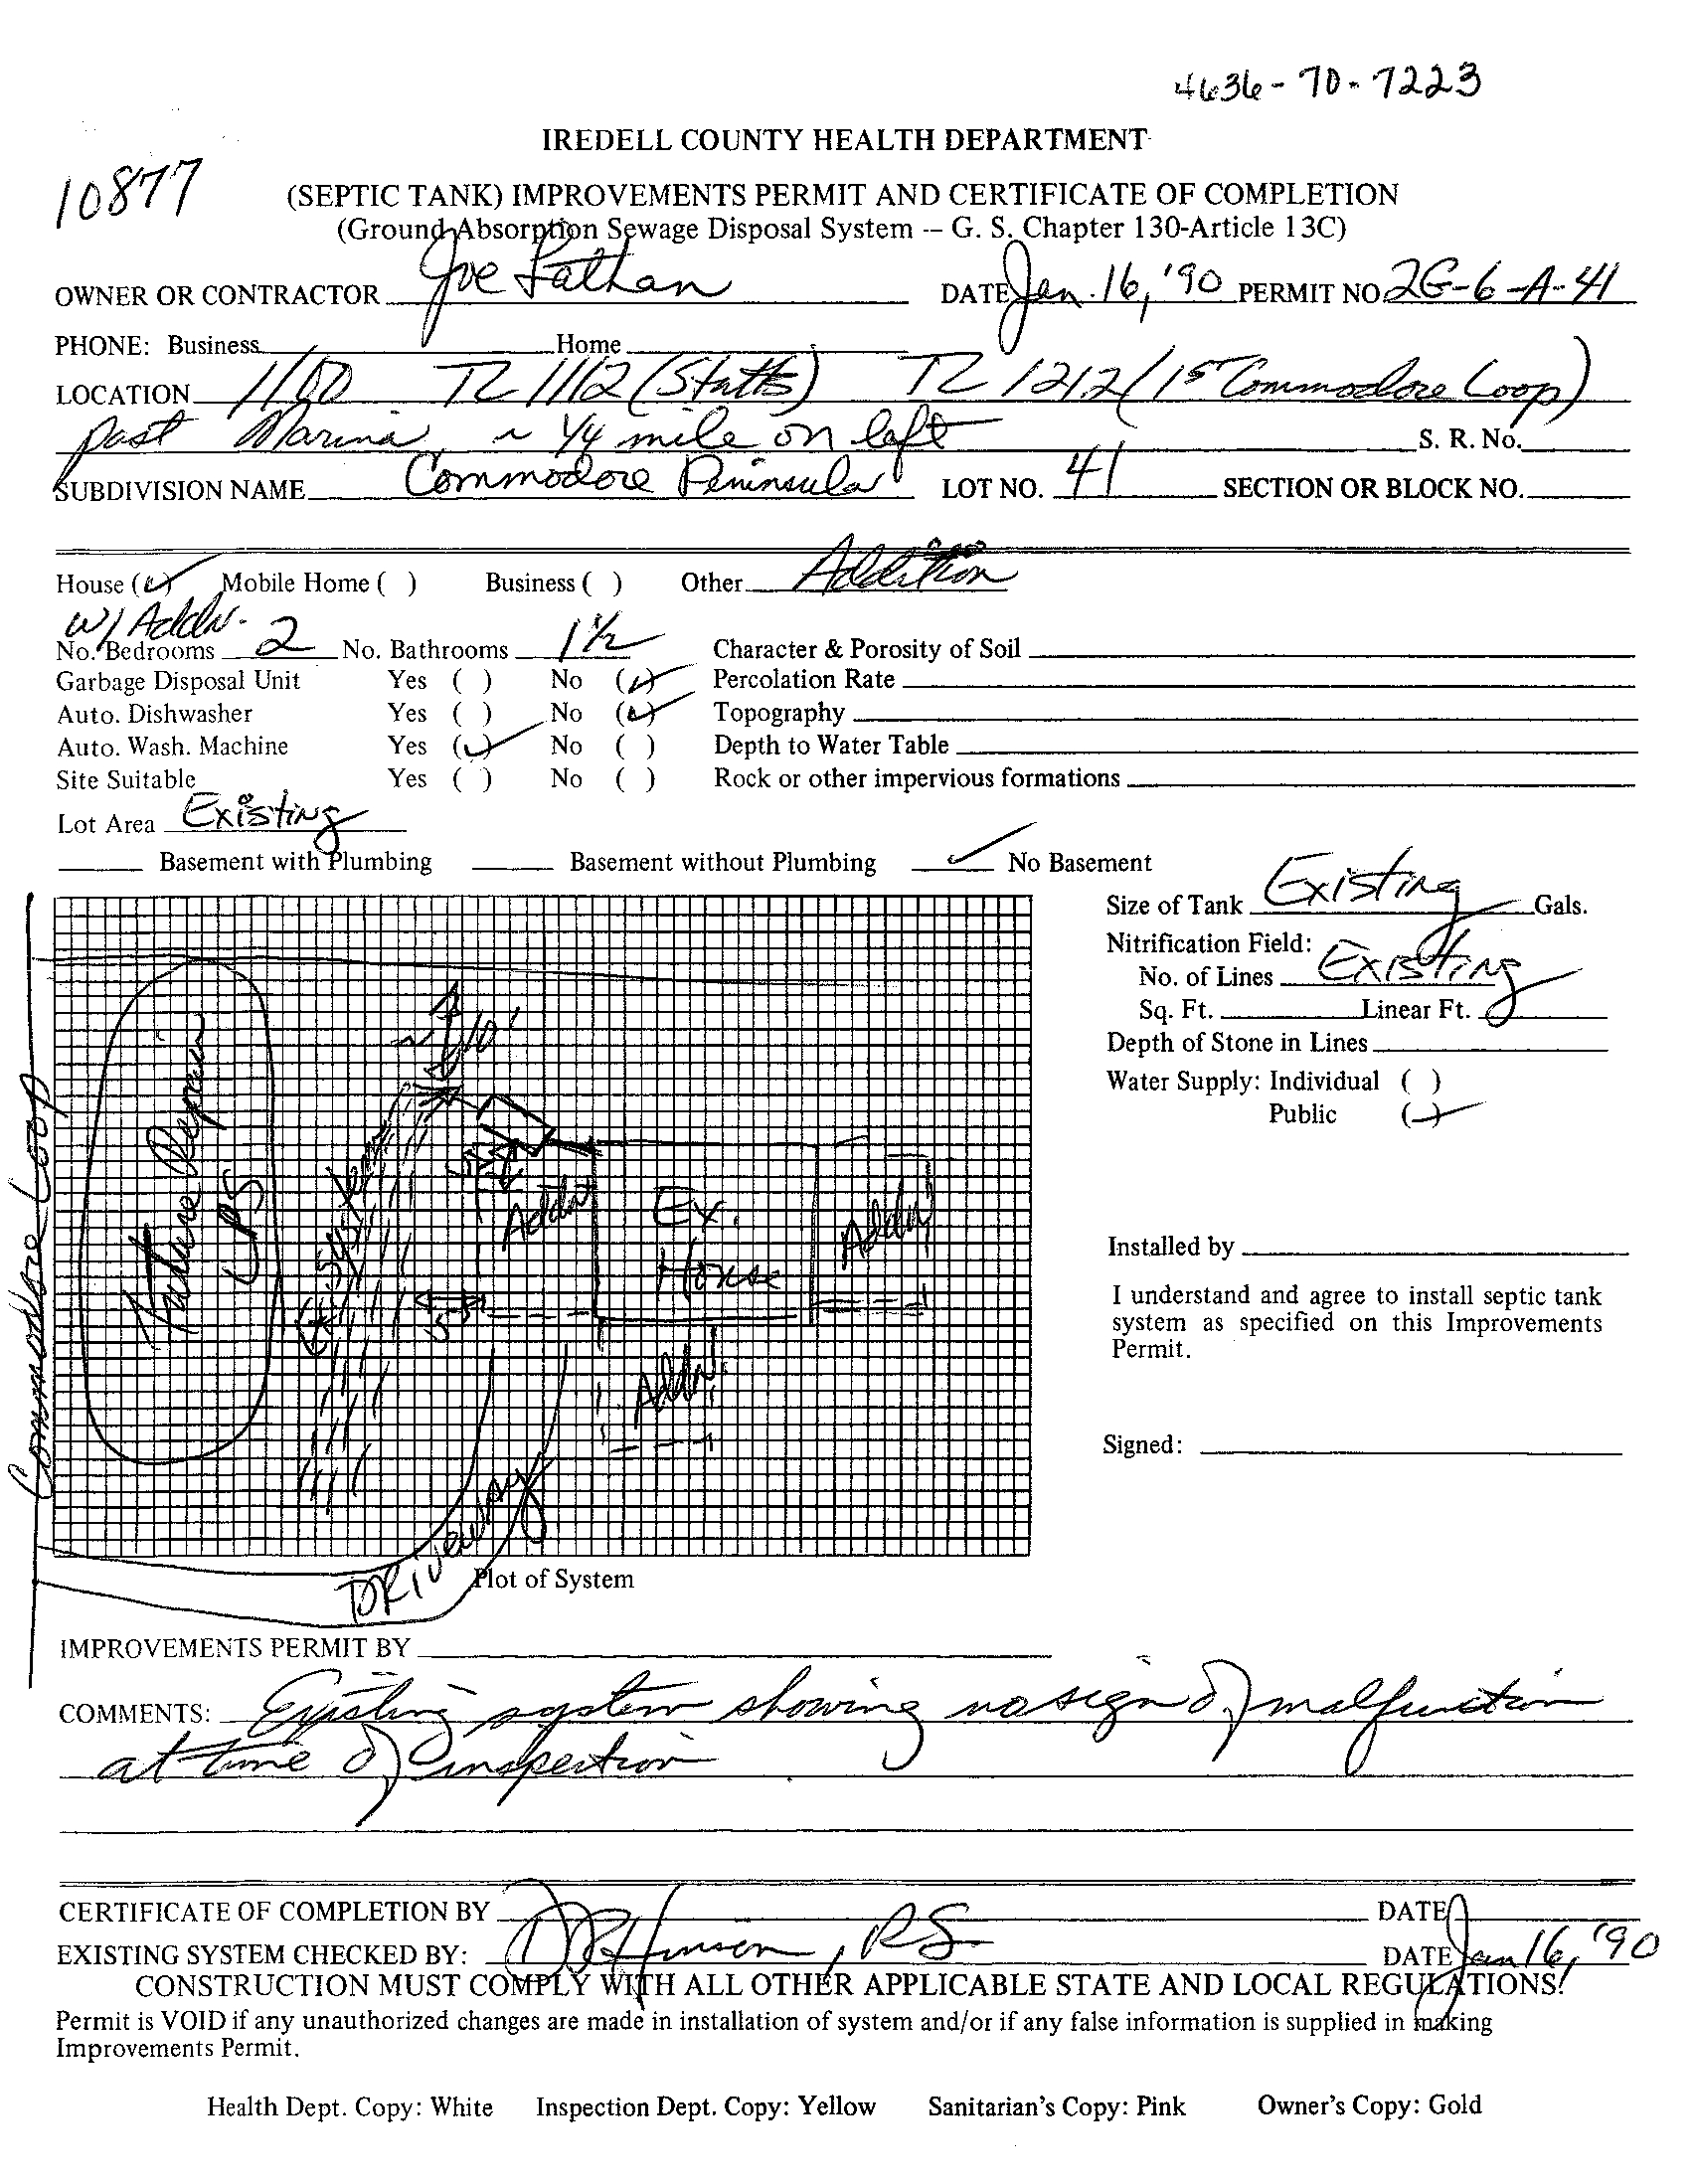 4636-70-7223
IREDELL COUNTY HEALTH DEPARTMENT
10877
(SEPTIC TANK) IMPROVEMENTS PERMIT AND CERTIFICATE OF COMPLETION
(Ground Absorption Sewage Disposal System -- G. S. Chapter 130-Article 13C)
OWNER OR CONTRACTOR Joe Lathan DATE Jan. 16, '90 PERMIT NO. 2G-6-A-41
PHONE: Business Home
LOCATION 1100 TL 1112 (Statts) TL 1212 (1st Commodore Loop)
past Marina ~ 1/4 mile on left S. R. No.
SUBDIVISION NAME Commodore Peninsula LOT NO. 41 SECTION OR BLOCK NO.
House (✓) Mobile Home ( ) Business ( ) Other Addition
w/ Addn.
No. Bedrooms 2 No. Bathrooms 1 1/2 Character & Porosity of Soil
Garbage Disposal Unit Yes ( ) No (✓) Percolation Rate
Auto. Dishwasher Yes ( ) No (✓) Topography
Auto. Wash. Machine Yes (✓) No ( ) Depth to Water Table
Site Suitable Yes ( ) No ( ) Rock or other impervious formations
Lot Area Existing
Basement with Plumbing Basement without Plumbing ✓ No Basement
Size of Tank Existing Gals.
Nitrification Field:
No. of Lines Existing
Sq. Ft. Linear Ft.
Depth of Stone in Lines
Water Supply: Individual ( )
Public (✓)
Installed by
I understand and agree to install septic tank
system as specified on this Improvements
Permit.
Signed:
Commodore Loop
Future Repair
LPS
Ex. System
~ 10'
5'
Addn
Ex.
House
Addn
5'
Addn
Driveway
Plot of System
IMPROVEMENTS PERMIT BY
COMMENTS: Existing system showing no sign of malfunction
at time of inspection
CERTIFICATE OF COMPLETION BY DATE
EXISTING SYSTEM CHECKED BY: D R Hinson, RS DATE Jan 16, '90
CONSTRUCTION MUST COMPLY WITH ALL OTHER APPLICABLE STATE AND LOCAL REGULATIONS!
Permit is VOID if any unauthorized changes are made in installation of system and/or if any false information is supplied in making
Improvements Permit.
Health Dept. Copy: White Inspection Dept. Copy: Yellow Sanitarian's Copy: Pink Owner's Copy: Gold